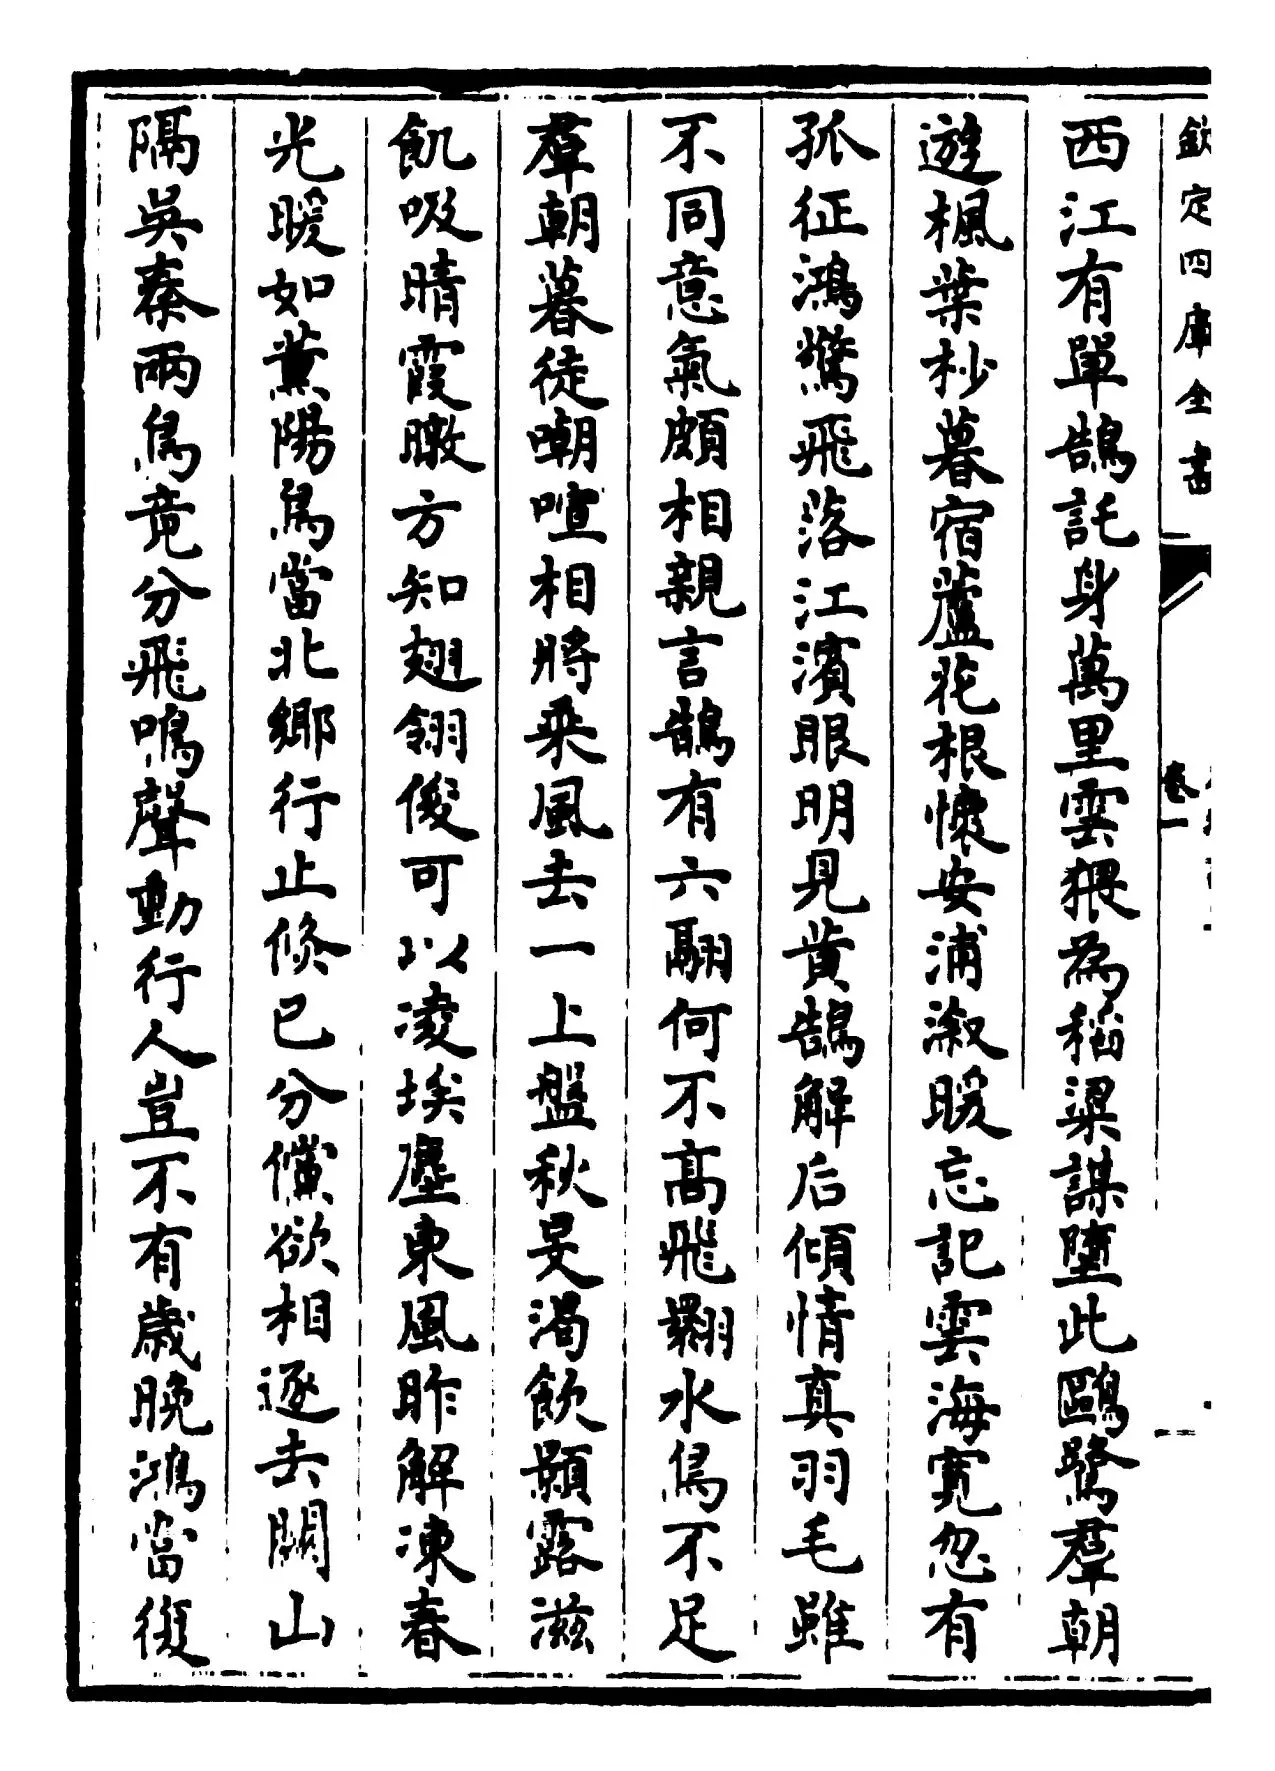 欽定四庫全書
卷一
西江有單鵠託身萬里雲猥為稻粱謀墮此鷗鷺羣朝
遊楓葉杪暮宿蘆花根懷安浦溆暖忘記雲海寛忽有
孤征鴻驚飛落江濱眼明見黄鵠解后傾情真羽毛雖
不同意氣頗相親言鵠有六翮何不髙飛翻水鳥不足
羣朝暮徒嘲喧相將乘風去一上盤秋旻渴飲顥露滋
飢吸晴霞暾方知翅翎俊可以凌埃塵東風昨解凍春
光暖如薰陽鳥當北鄉行止倐已分儻欲相逐去關山
隔吳秦兩鳥竟分飛鳴聲動行人豈不有歲晚鴻當復